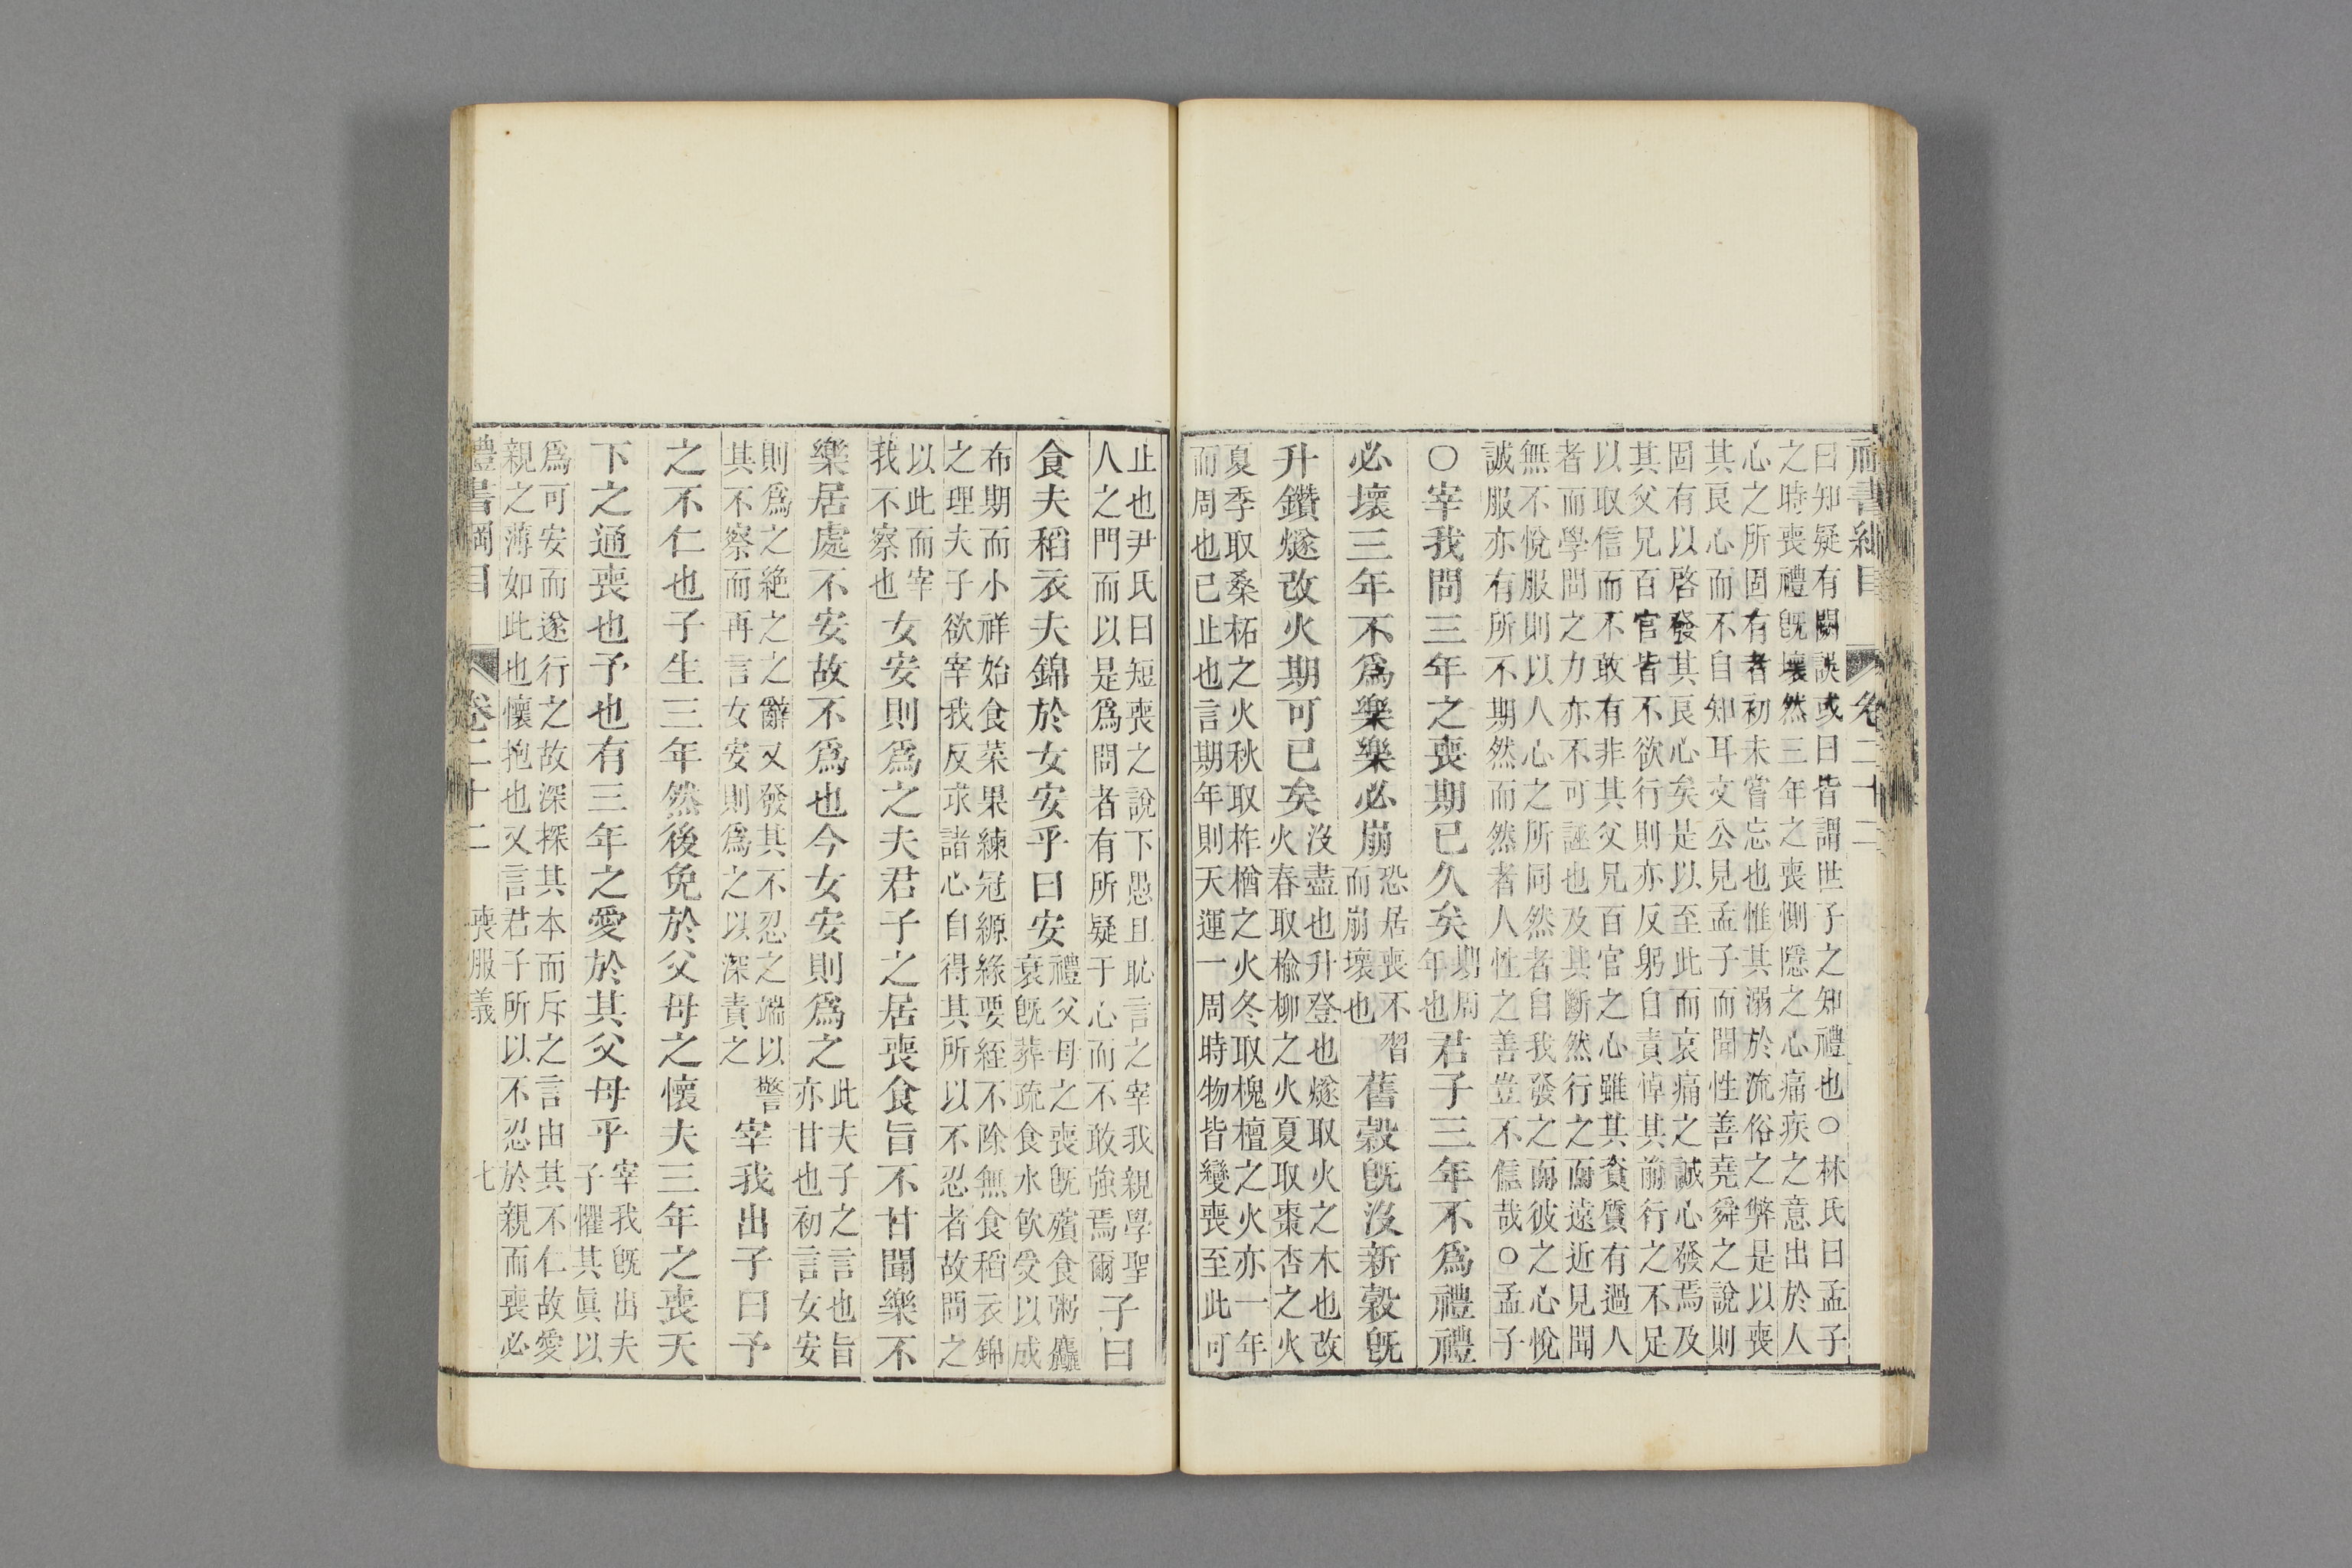 禮書綱目 卷二十二
曰知疑有闕誤或曰皆謂世子之知禮也○林氏曰孟子
之時喪禮旣壞然三年之喪惻隱之心痛疾之意出於人
心之所固有者初未嘗忘也惟其溺於流俗之弊是以喪
其良心而不自知耳文公見孟子而聞性善堯舜之說則
固有以啓發其良心矣是以至此而哀痛之誠心發焉及
其父兄百官皆不欲行則亦反躬自責悼其前行之不足
以取信而不敢有非其父兄百官之心雖其資質有過人
者而學問之力亦不可誣也及其斷然行之而遠近見聞
無不悅服則以人心之所同然者自我發之而彼之心悅
誠服亦有所不期然而然者人性之善豈不信哉○孟子
○宰我問三年之喪期已久矣期周年也君子三年不爲禮禮
必壞三年不爲樂樂必崩恐居喪不習而崩壞也舊穀旣沒新穀旣
升鑽燧改火期可已矣沒盡也升登也燧取火之木也改火春取榆柳之火夏取棗杏之火
夏季取桑柘之火秋取柞楢之火冬取槐檀之火亦一年
而周也已止也言期年則天運一周時物皆變喪至此可
止也尹氏曰短喪之說下愚且恥言之宰我親學聖人之門而以是爲問者有所疑于心而不敢強焉爾子曰
食夫稻衣夫錦於女安乎曰安禮父母之喪旣殯食粥麤衰旣葬疏食水飮受以成
布期而小祥始食菜果練冠縓緣要絰不除無食稻衣錦
之理夫子欲宰我反求諸心自得其所以不忍者故問之
以此而宰我不察也女安則爲之夫君子之居喪食旨不甘聞樂不
樂居處不安故不爲也今女安則爲之此夫子之言也旨亦甘也初言女安
則爲之絶之之辭又發其不忍之端以警其不察而再言女安則爲之以深責之宰我出子曰予
之不仁也子生三年然後免於父母之懷夫三年之喪天
下之通喪也予也有三年之愛於其父母乎宰我旣出夫子懼其眞以
爲可安而遂行之故深探其本而斥之言由其不仁故愛
親之薄如此也懷抱也又言君子所以不忍於親而喪必
禮書綱目 卷二十二 喪服義 七